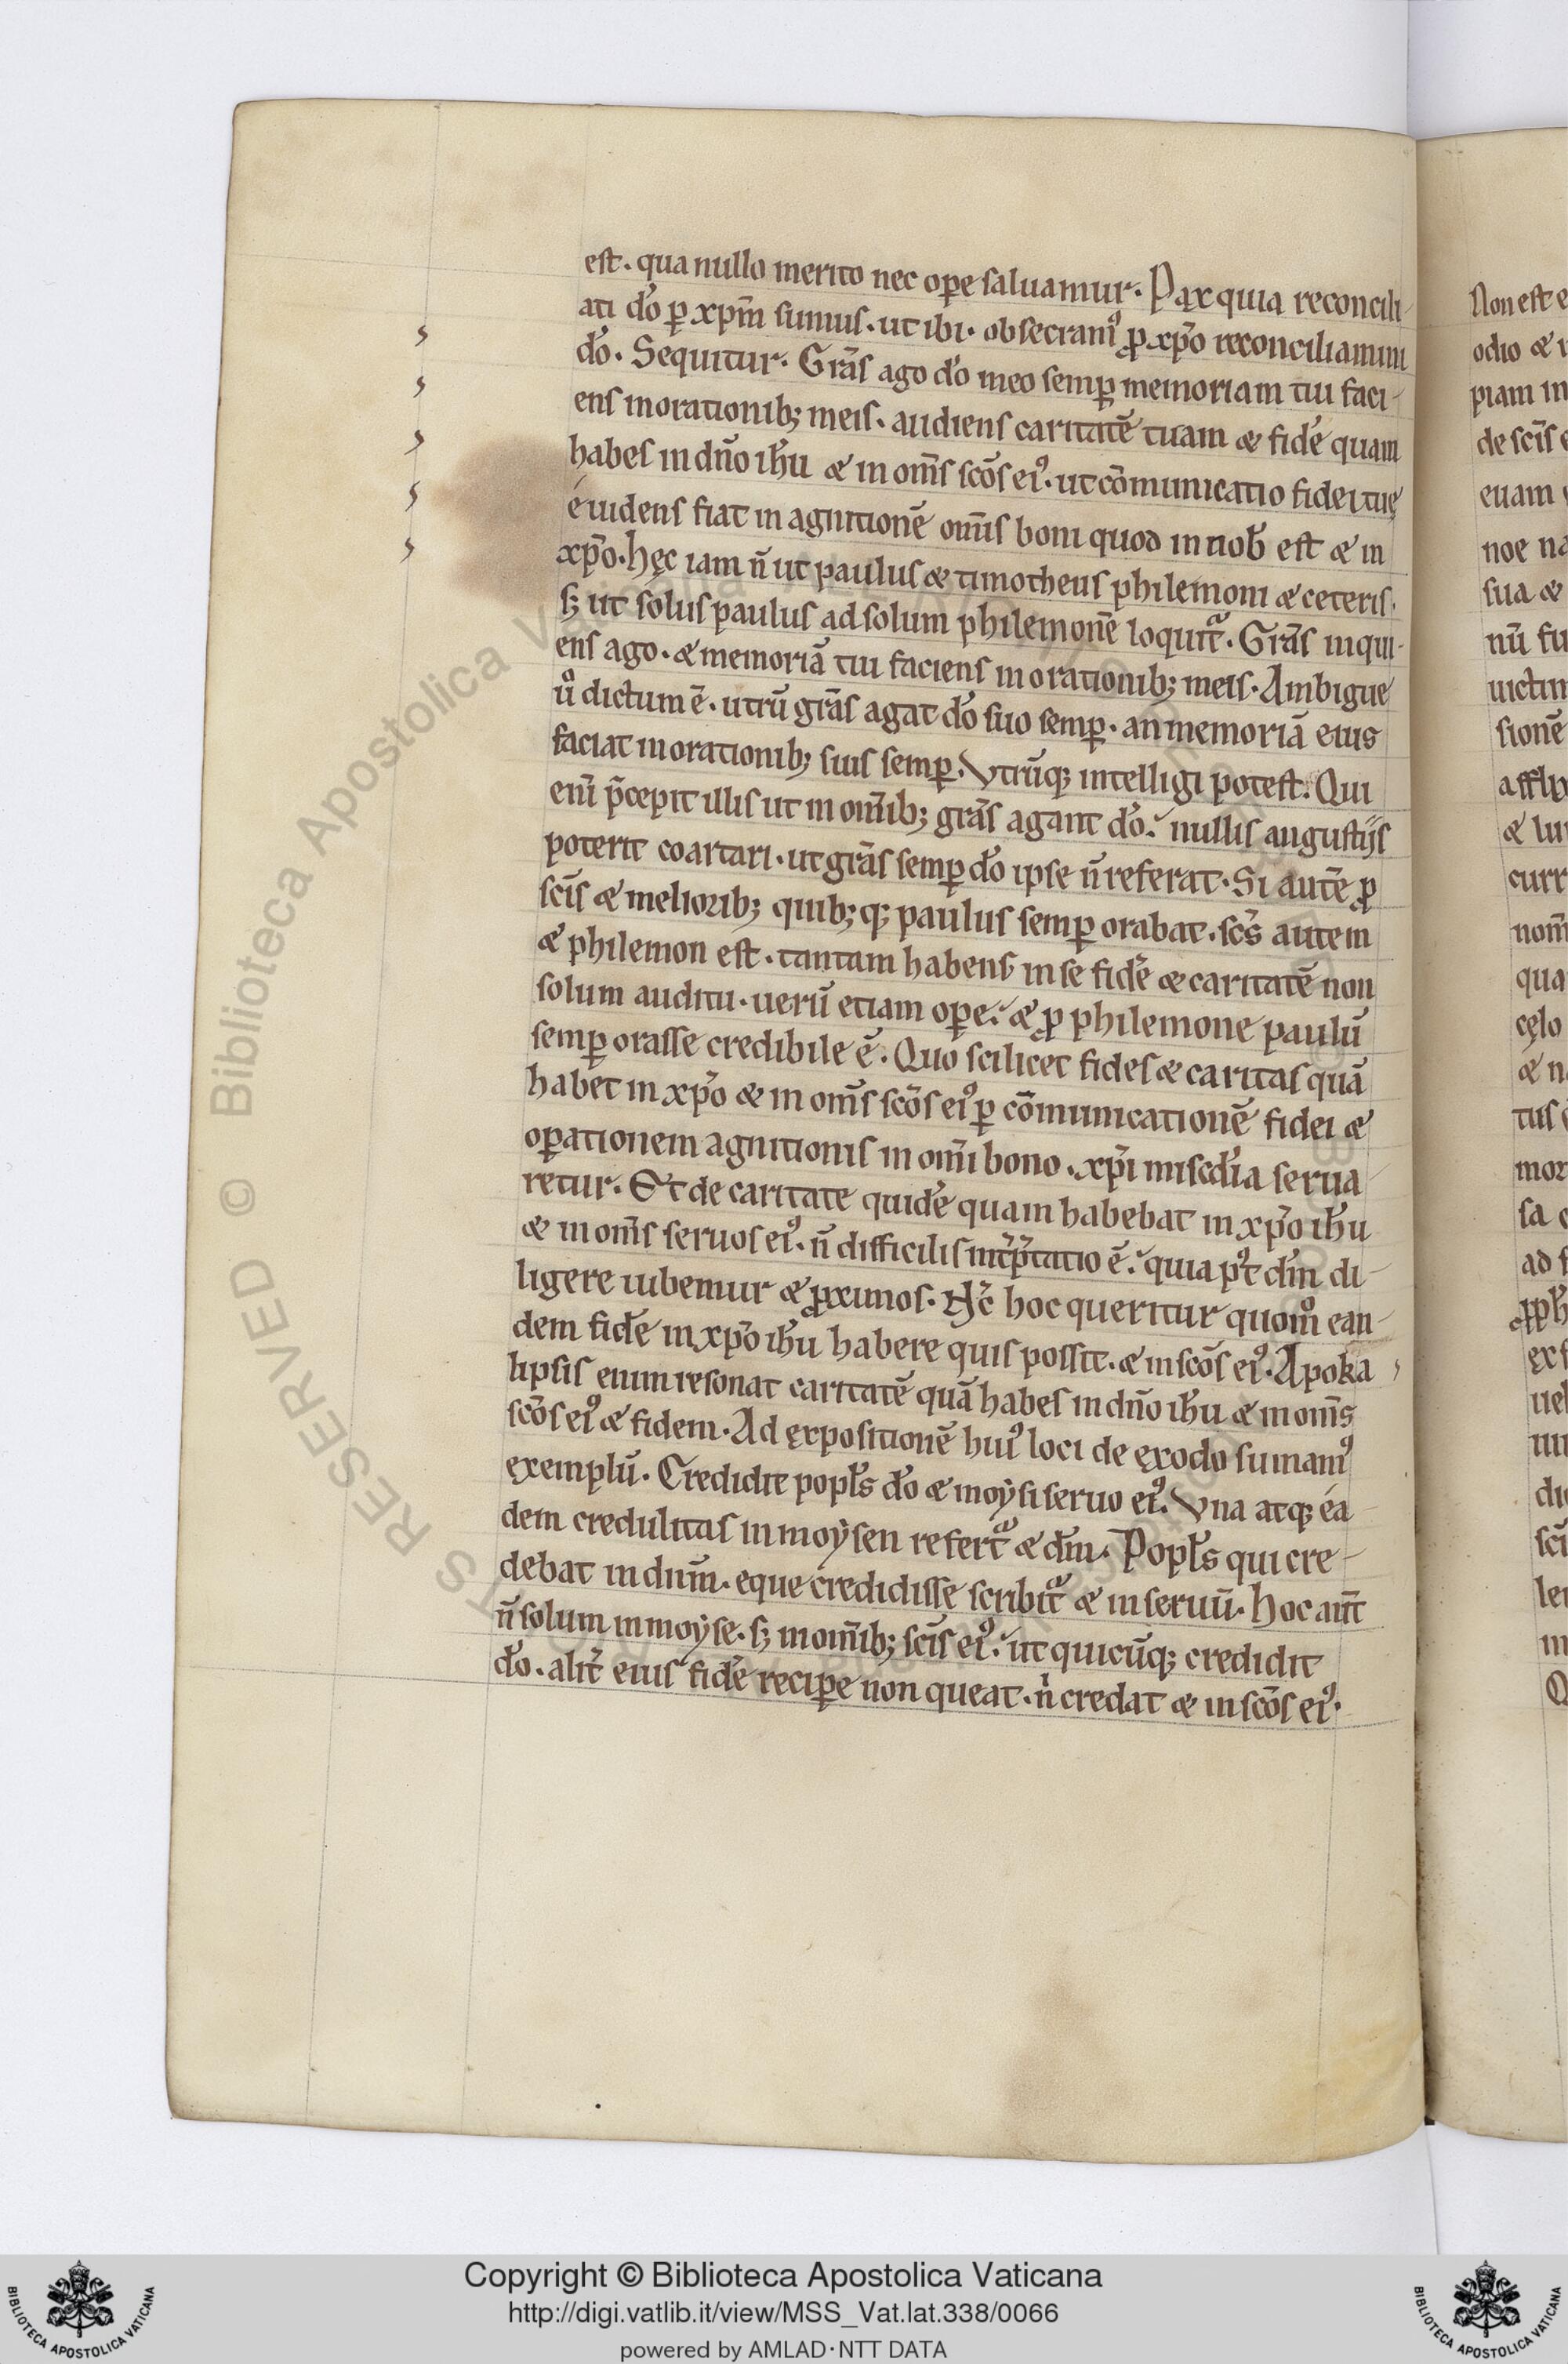 est. qua nullo merito nec op̲e saluamur. Pax quia reconcili-
ati do̅ p̲ xpm̅ sumus. ut ibi. obsecram᷒ ꝓ xpo̅ reconciliamini
do̅. Sequitur. Gra̅s ago do̅ meo semp̲ memoriam tui faci-
ens in orationib; meis. audiens caritate̅ tuam & fide̅ quam
habes in dn̅o ih̅u & in om̅s sc̅os ei᷒. ut co̅municatio fidei tuę
euidens fiat in agnitione̅ om̅is boni quod in uob̅ est & in
xp̅o. hęc iam n̅ ut paulus & timotheus philemoni & ceteris.
s; ut solus paulus ad solum philemone̅ loquit᷑. Gra̅s inqui-
ens ago. & memoria̅ tui faciens in orationib; meis. Ambigue
uº dictum e̅. utru̅ gra̅s agat do̅ suo semp̲. an memoria̅ eius
faciat in orationib; suis semp̲. Vtru̅q; intelligi potest. Qui
eni̅ p̅cepit illis ut in om̅ib; gra̅s agant do̅. nullis angustijs
poterit coartari. ut gra̅s semp̲ do̅ ipse n̅ referat. Si aute̅ ꝓ
sc̅is & meliorib; quib;q; paulus semp̲ orabat. sc̅s autem
& philemon est. tantam habens in se fide̅ & caritate̅ non
solum auditu. ueru̅ etiam op̲e. & ꝓ philemone paulu̅
semp̲ orasse credibile e̅. Quo scilicet fides & caritas qua̅
habet in xp̅o & in om̅s sc̅os ei᷒ p̲ co̅municatione̅ fidei &
op̲ationem agnitionis in om̅i bono. xp̅i misc̅dia serua-
retur. Et de caritate quide̅ quam habebat in xp̅o ih̅u
& in om̅s seruos ei᷒. n̅ difficilis int̅p̅tatio e̅. quia p᷒t dm̅ di-
ligere iubemur & ꝓximos. Nc̅ hoc queritur quomº ean-
dem fide̅ in xp̅o ih̅u habere quis possit. & in sc̅os ei᷒. Apoka
lipsis enim resonat caritate̅ qua̅ habes in dn̅o ih̅u & in om̅s
sc̅os ei᷒ & fidem. Ad expositione̅ hui᷒ loci de exodo sumam᷒
exemplu̅. Credidit popl̅s do̅ & moẏsi seruo ei᷒. Vna atq; ea-
dem credulitas in moẏsen refert᷑ & dm̅. Popl̅s qui cre-
debat in dnm̅. eque credidisse scribit᷑ & in seruu̅. Hoc aut̅
n̅ solum in moẏse. s; in om̅ib; sc̅is ei᷒. ut quicu̅q; credidit
do̅. alit̅ eius fide̅ recip̲e non queat. nⁱ credat & in sc̅os ei᷒.
Non est e
odio & i
piam in
de sc̅is
euam
noe na
sua &
nu̅ fu
uictim
sione̅
afflix
& lu
curr
nom̅
qua
cęlo
& n
tus
mor
sa
ad f
ex
uel
di
sc̅i
Q
Copyright © Biblioteca Apostolica Vaticana
http://digi.vatlib.it/view/MSS_Vat.lat.338/0066
powered by AMLAD·NTT DATA
BIBLIOTECA APOSTOLICA VATICANA
BIBLIOTECA APOSTOLICA VATICANA